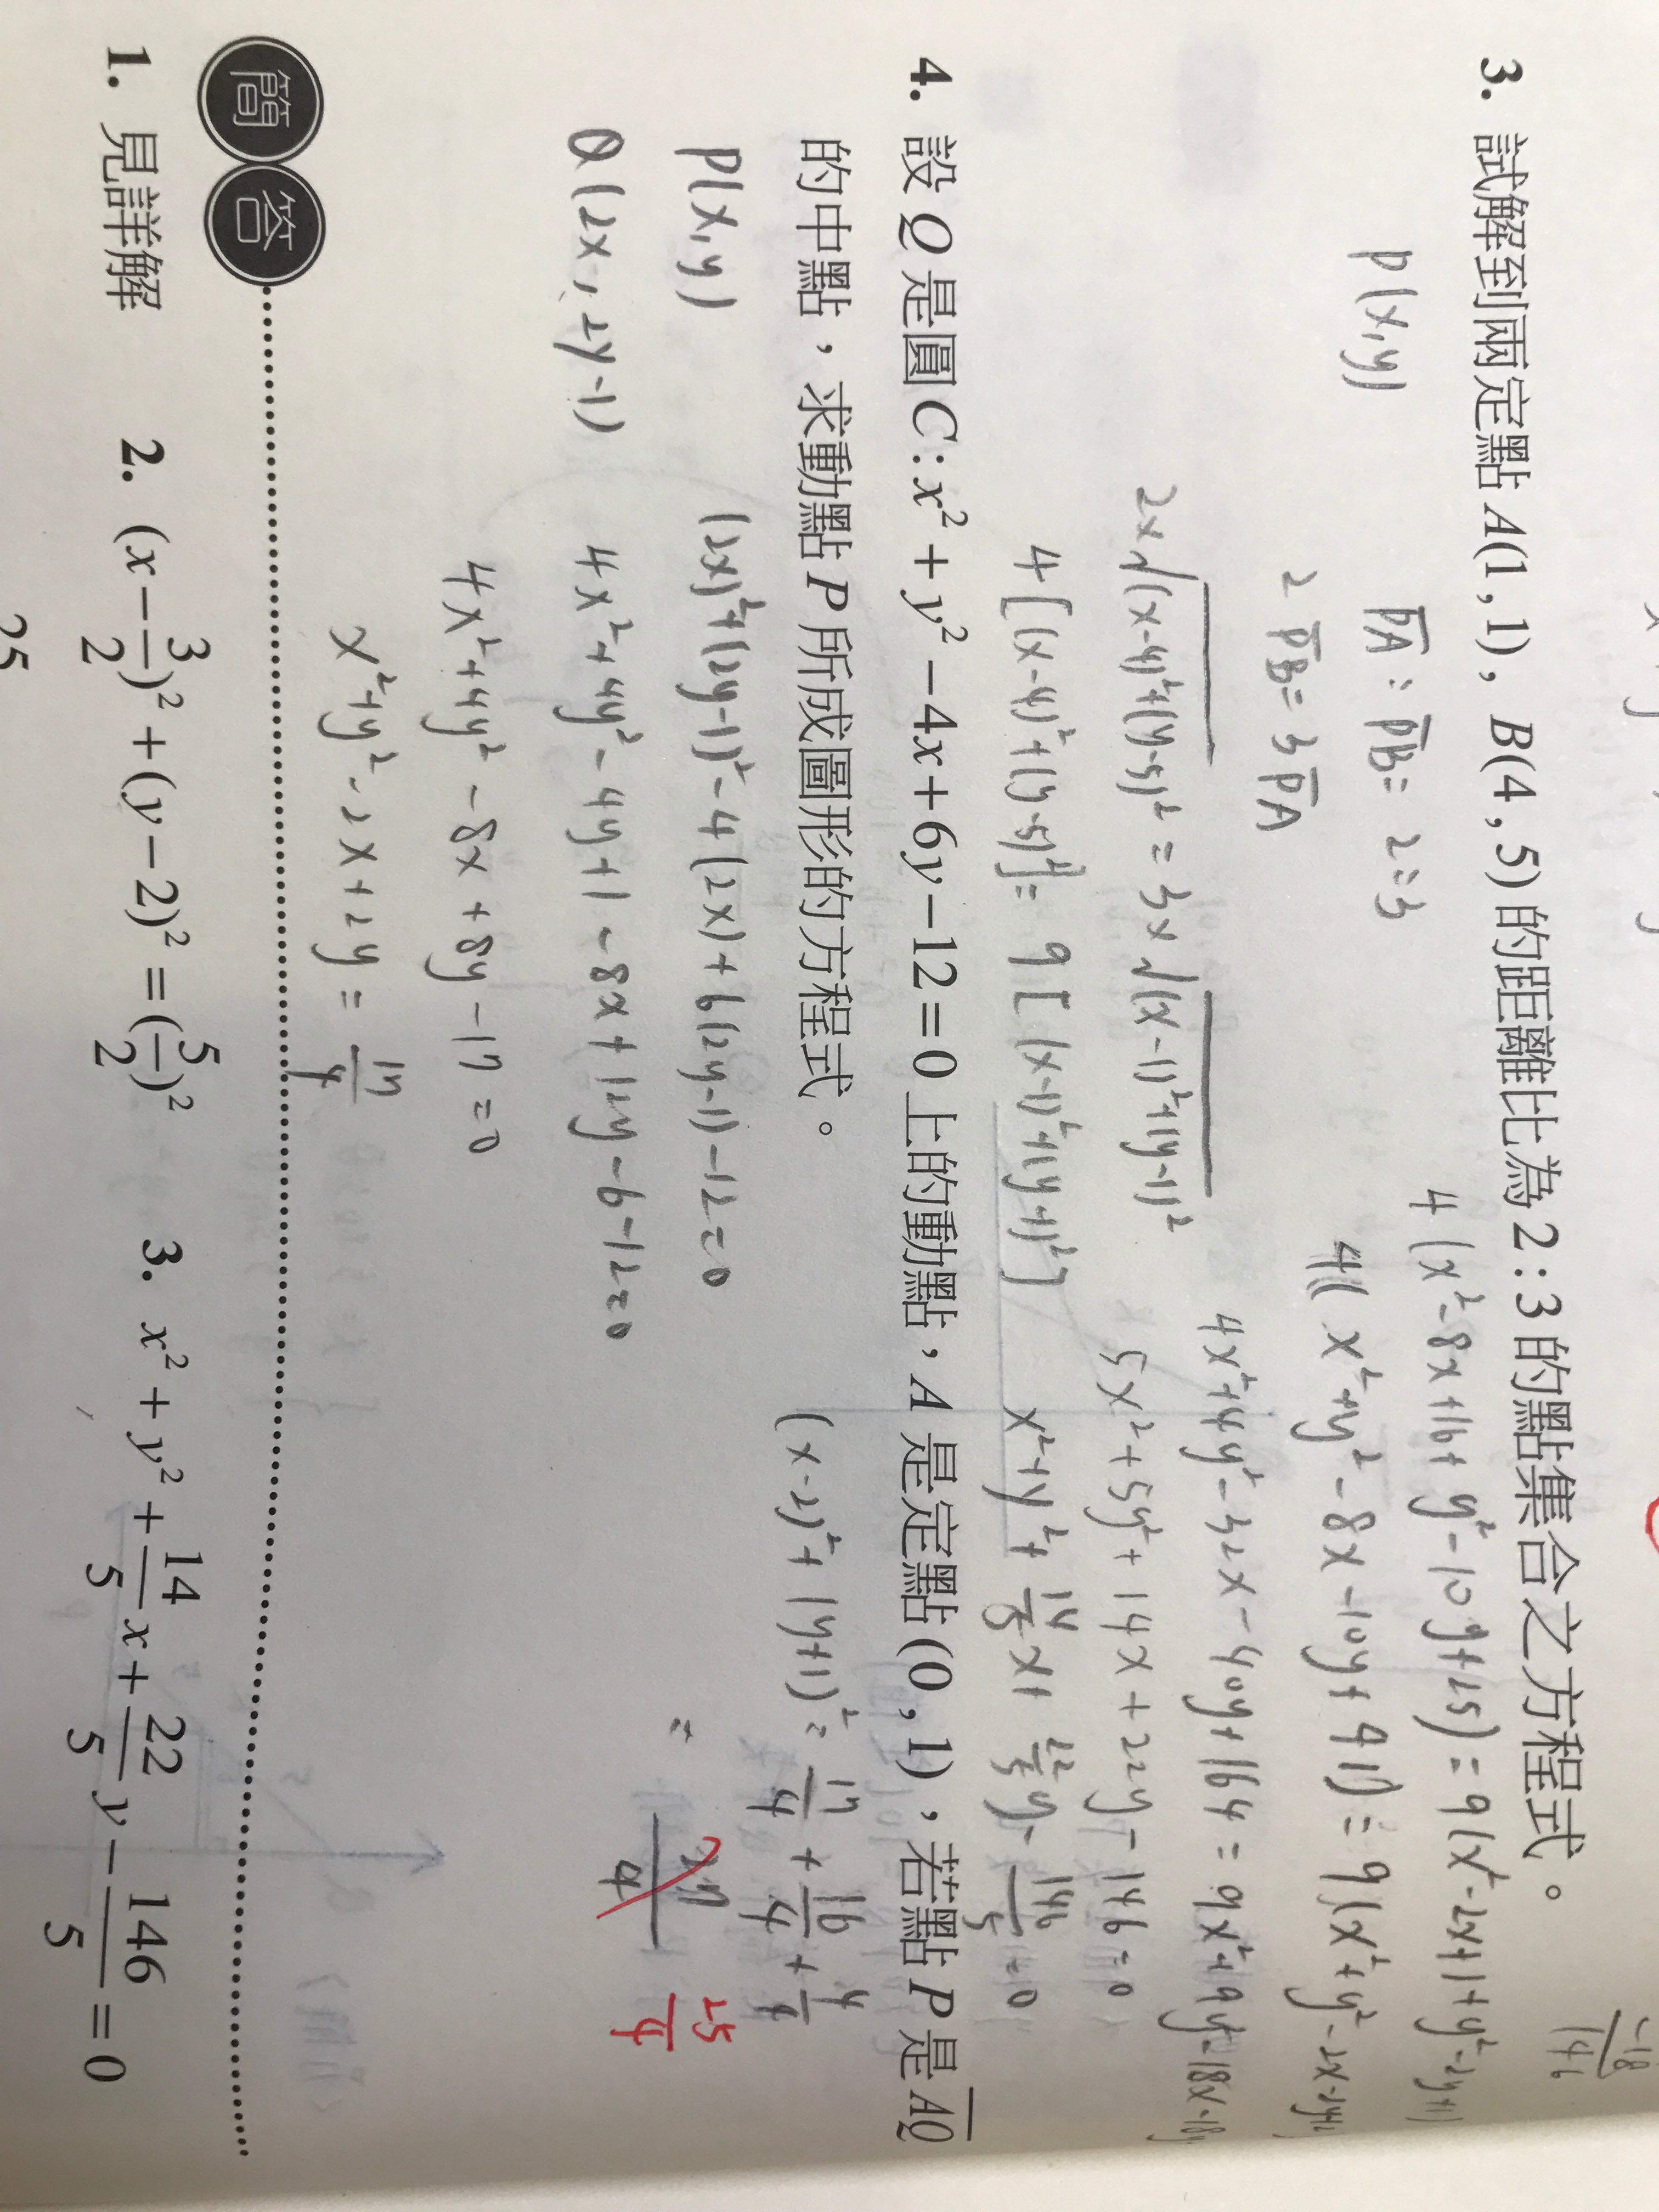 3. 試解到兩定點 A(1 , 1), B(4 , 5) 的距離比為 2 : 3 的點集合之方程式。
P(x,y)
PA : PB = 2:3
2PB = 3PA
2×√(x-4)²+(y-5)² = 3×√(x-1)²+(y-1)²
4[(x-4)²+(y-5)²] = 9[(x-1)²+(y-1)²]
4(x²-8x+16+y²-10y+25) = 9(x²-2x+1+y²-2y+1)
4(x²+y²-8x-10y+41) = 9(x²+y²-2x-2y+2
4x²+4y²-32x-40y+164 = 9x²+9y²-18x-18y
5x²+5y²+14x+22y-146=0
x²+y²+14/5x+22/5y-146/5=0
-18
146
4. 設 Q 是圓 C : x² + y² − 4x + 6y − 12 = 0 上的動點，A 是定點 (0 , 1)，若點 P 是 AQ
的中點，求動點 P 所成圖形的方程式。
P(x,y)
Q(2x, 2y-1)
(2x)²+(2y-1)²-4(2x)+6(2y-1)-12=0
4x²+4y²-4y+1-8x+12y-6-12=0
4x²+4y²-8x+8y-17=0
x²+y²-2x+2y=17/4
(x-2)²+(y+1)²=17/4+16/4+4/4
=
25/4
簡答
1. 見詳解 2. (x − 3/2)² + (y − 2)² = (5/2)² 3. x² + y² + 14/5 x + 22/5 y − 146/5 = 0
25